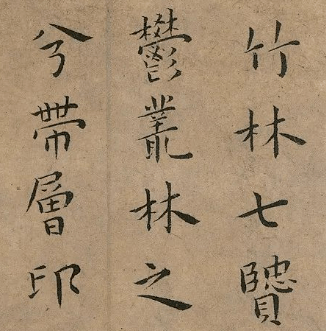 竹林七贒
鬱叢林之
兮帶層印